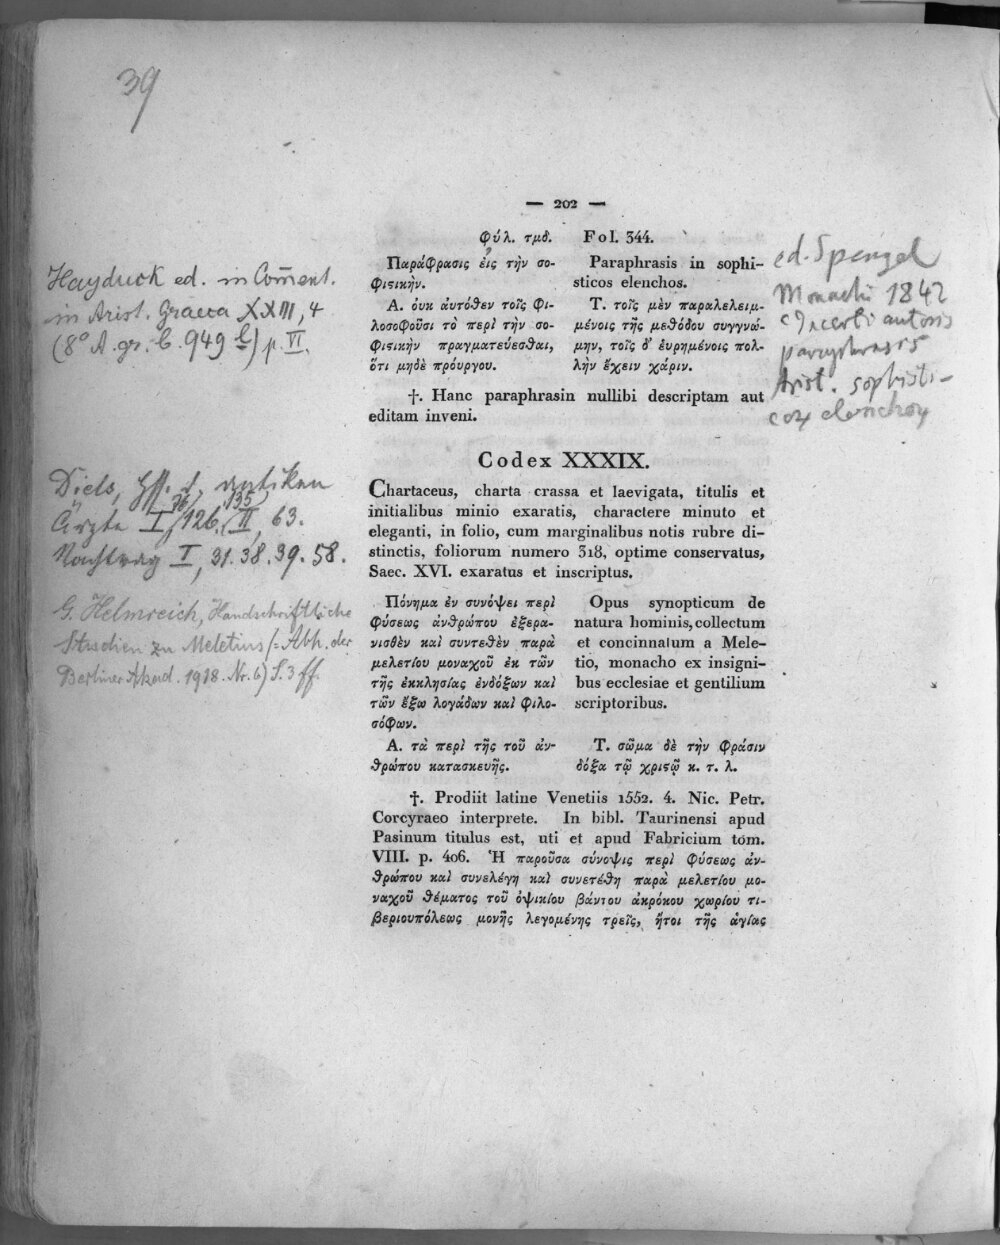 39
— 202 —
Φύλ. τμδ. Fol. 344.
Παράφρασις εἰς τὴν σο-
φιϛικήν.
Α. οὐκ αὐτόθεν τοῖς Φι-
λοσοφοῦσι τὸ περὶ τὴν σο-
φιϛικὴν πραγματεύεσθαι,
ὅτι μηδὲ πρόυργου.
Paraphrasis in sophi-
sticos elenchos.
Τ. τοῖς μὲν παραλελειμ-
μένοις τῆς μεθόδου συγγνώ-
μην, τοῖς δ' ἑυρημένοις πολ-
λὴν ἔχειν χάριν.
†. Hanc paraphrasin nullibi descriptam aut
editam inveni.
Codex XXXIX.
Chartaceus, charta crassa et laevigata, titulis et
initialibus minio exaratis, charactere minuto et
eleganti, in folio, cum marginalibus notis rubre di-
stinctis, foliorum numero 318, optime conservatus,
Saec. XVI. exaratus et inscriptus.
Πόνημα ἐν συνόψει περὶ
φύσεως ἀνθρώπου ἐξερα-
νισθὲν καὶ συντεθὲν παρὰ
μελετίου μοναχοῦ ἐκ τῶν
τῆς ἐκκλησίας ἐνδόξων καὶ
τῶν ἔξω λογάδων καὶ φιλο-
σόφων.
Α. τὰ περὶ τῆς τοῦ ἀν-
θρώπου κατασκευῆς.
Opus synopticum de
natura hominis, collectum
et concinnatum a Mele-
tio, monacho ex insigni-
bus ecclesiae et gentilium
scriptoribus.
Τ. σῶμα δὲ τὴν φράσιν
δόξα τῷ χριϛῷ κ. τ. λ.
†. Prodiit latine Venetiis 1552. 4. Nic. Petr.
Corcyraeo interprete. In bibl. Taurinensi apud
Pasinum titulus est, uti et apud Fabricium tom.
VIII. p. 406. Ἡ παροῦσα σύνοψις περὶ φύσεως ἀν-
θρώπου καὶ συνελέγη καὶ συνετέθη παρὰ μελετίου μο-
ναχοῦ θέματος τοῦ ὀψικίου βάντου ἀκρόκου χωρίου τι-
βεριουπόλεως μονῆς λεγομένης τρεῖς, ἤτοι τῆς ἁγίας
Hayduck ed. in Com̄ent.
in Arist. Graeca XXIII, 4
(8° A. gr. b. 949 l) p. VI.
Diels, Hss. d. antiken
Ärzte I, 76, 126. 135, II, 63.
Nachtrag I, 31. 38. 39. 58.
G. Helmreich, Handschriftliche
Studien zu Meletius (= Abh. der
Berliner Akad. 1918. Nr. 6) S. 3 ff.
ed. Spengel
Monachi 1842
Incerti autoris
paraphrasis
Arist. sophisti-
cor elenchor